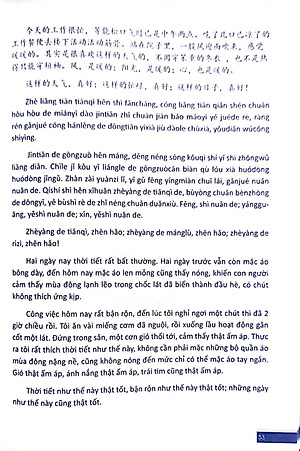 今天的工作很忙，等能松口气时已是中午两点。吃了几口已凉了的
工作餐便去楼下活动活动筋骨。站在院子里，一股风迎面吹来，感觉
暖暖的。其实是很喜欢这样的天气的，不用穿笨重的冬衣，也不是热
得只能穿短袖。风，是暖的；阳光，是暖的；心，也是暖的。
这样的天气，真好；这样的忙碌，真好；这样的日子，真好！
Zhè liǎng tiān tiānqì hěn shì fǎncháng, cóng liǎng tiān qián shēn chuān
hòu hòu de mián'ǎo dào jīntiān zhǐ chuān jiàn báo máoyī yě juéde rè, ràng
rén gǎnjué cóng hánlěng de dōngtiān yíxià jiù dàole chūxià, yǒudiǎn wúcóng
shìyìng.
Jīntiān de gōngzuò hěn máng, děng néng sōng kǒuqì shí yǐ shì zhōngwǔ
liǎng diǎn. Chīle jǐ kǒu yǐ liángle de gōngzuòcān biàn qù lóu xià huódòng
huódong jīngǔ. Zhàn zài yuànzi lǐ, yì gǔ fēng yíngmiàn chuī lái, gǎnjué nuǎn
nuǎn de. Qíshí shì hěn xǐhuān zhèyàng de tiānqì de, búyòng chuān bènzhòng
de dōngyī, yě bùshì rè de zhǐ néng chuān duǎnxiù. Fēng, shì nuǎn de; yángguāng-
āng, yěshì nuǎn de; xīn, yěshì nuǎn de.
Zhèyàng de tiānqì, zhēn hǎo; zhèyàng de mánglù, zhēn hǎo; zhèyàng de
rìzi, zhēn hǎo!
Hai ngày nay thời tiết rất bất thường. Hai ngày trước vẫn còn mặc áo
bông dày, đến hôm nay mặc áo len mỏng cũng thấy nóng, khiến con người
cảm thấy mùa đông lạnh lẽo trong chốc lát đã biến thành đầu hè, có chút
không thích ứng kịp.
Công việc hôm nay rất bận rộn, đến lúc tôi nghỉ ngơi một chút thì đã 2
giờ chiều rồi. Tôi ăn vài miếng cơm đã nguội, rồi xuống lầu hoạt động gân
cốt một lát. Đứng trong sân, một cơn gió thổi tới, cảm thấy thật ấm áp. Thực
ra tôi rất thích thời tiết như thế này, không cần phải mặc những bộ quần áo
mùa đông nặng nề, cũng không nóng đến mức chỉ có thể mặc áo tay ngắn.
Gió thật ấm áp, ánh nắng thật ấm áp, trái tim cũng thật ấm áp.
Thời tiết như thế này thật tốt, bận rộn như thế này thật tốt; những ngày
như thế này cũng thật tốt.
53